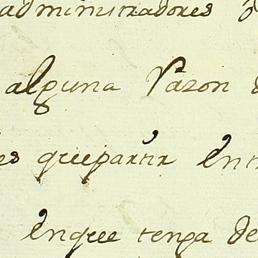 administradores
alguna razon
queepartir
enque tenga de